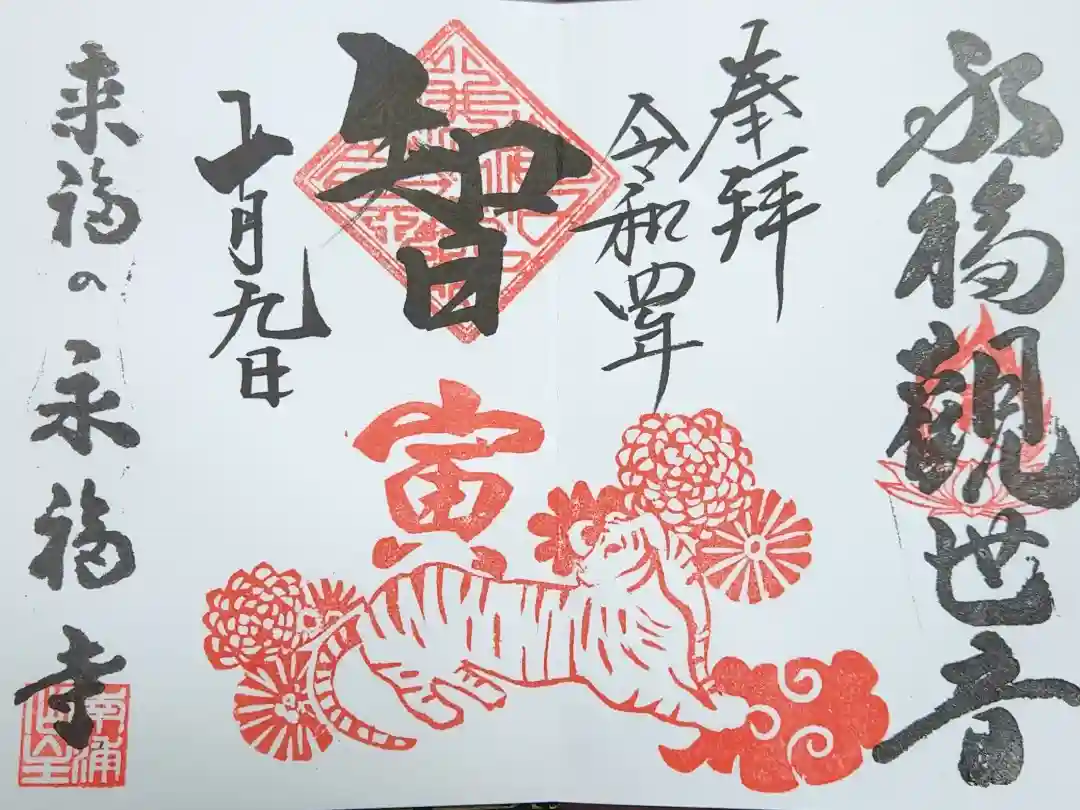 永福観世音
奉拝
令和四年
智
寅
十月九日
来福の永福寺